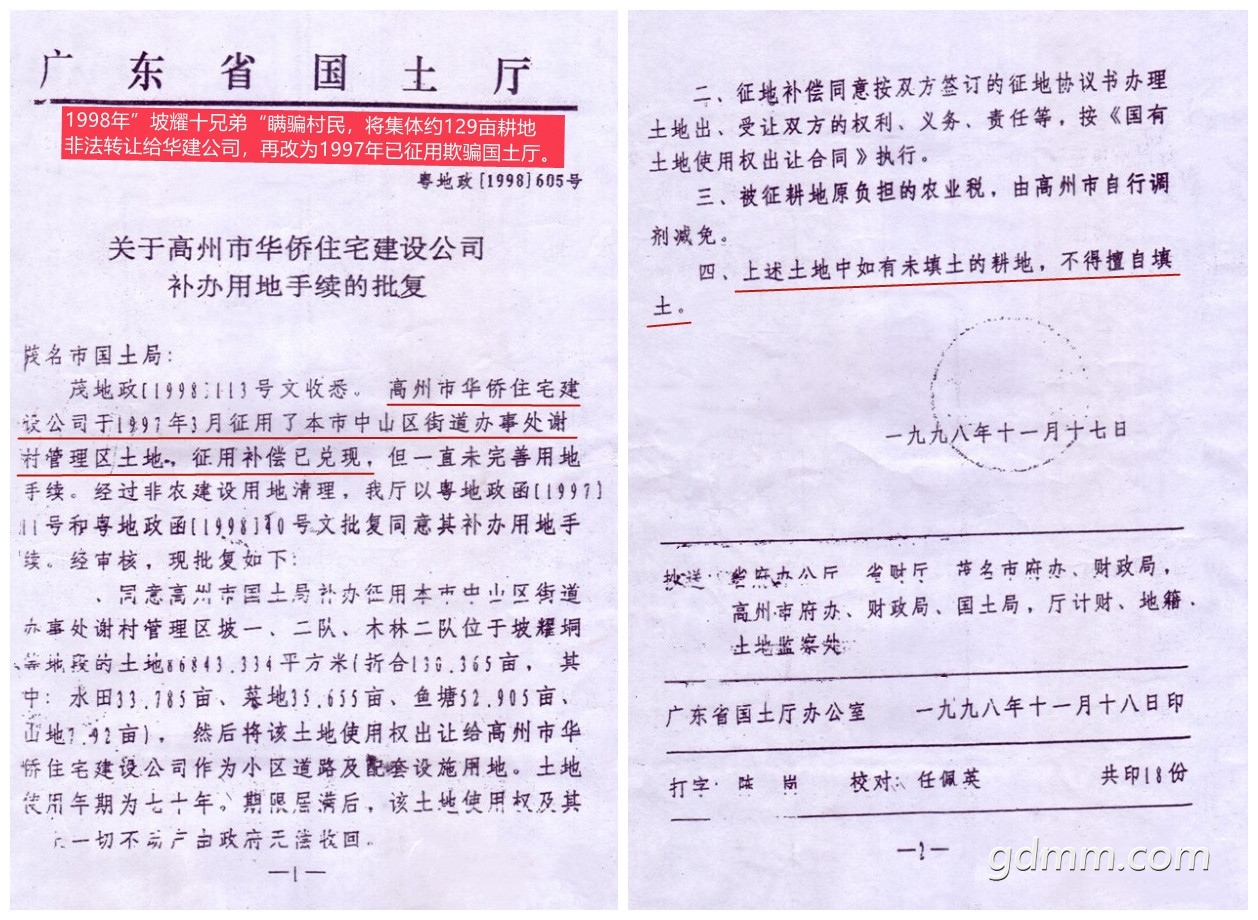 广东省国土厅
1998年”坡耀十兄弟“瞒骗村民，将集体约129亩耕地
非法转让给华建公司，再改为1997年已征用欺骗国土厅。
粤地政[1998]605号
关于高州市华侨住宅建设公司
补办用地手续的批复
茂名市国土局：
茂地政[1998]113号文收悉。高州市华侨住宅建
设公司于1997年3月征用了本市中山区街道办事处谢
村管理区土地，征用补偿已兑现，但一直未完善用地
手续。经过非农建设用地清理，我厅以粤地政函[1997]
11号和粤地政函[1998]40号文批复同意其补办用地手
续。经审核，现批复如下：
、同意高州市国土局补办征用本市中山区街道
办事处谢村管理区坡一、二队、木林二队位于坡耀垌
等地段的土地86843.334平方米(折合130.365亩，其
中：水田33.785亩、墓地35.655亩、鱼塘52.905亩、
山地7.92亩)，然后将该土地使用权出让给高州市华
侨住宅建设公司作为小区道路及配套设施用地。土地
使用年期为七十年。期限届满后，该土地使用权及其
上一切不动产由政府无偿收回。
—1—
二、征地补偿同意按双方签订的征地协议书办理
土地出、受让双方的权利、义务、责任等，按《国有
土地使用权出让合同》执行。
三、被征耕地原负担的农业税，由高州市自行调
剂减免。
四、上述土地中如有未填土的耕地，不得擅自填
土。
一九九八年十一月十七日
抄送：省府办公厅、省财厅、茂名市府办、财政局，
高州市府办、财政局、国土局，厅计财、地籍、
土地监察处
广东省国土厅办公室 一九九八年十一月十八日印
打字：陈 岗 校对：任佩英 共印18份
—2—
gdmm.com